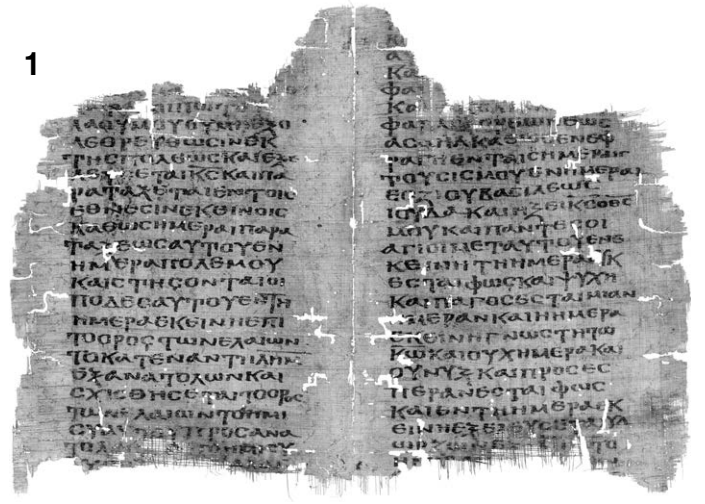 ΛΑΟΥΜΟΥΟΥΜΗΕΞΟ
ΛΕΘΡΕΥΘΩϹΙΝΕΚ
ΤΗϹΠΟΛΕΩϹΚΑΙΕΞΕ
ΛΕΥϹΕΤΑΙΚϹΚΑΙΠΑ
ΡΑΤΑΞΕΤΑΙΕΝΤΟΙϹ
ΕΘΝΕϹΙΝΕΚΕΙΝΟΙϹ
ΚΑΘΩϹΗΜΕΡΑΙΠΑΡΑ
ΤΑΞΕΩϹΑΥΤΟΥΕΝ
ΗΜΕΡΑΠΟΛΕΜΟΥ
ΚΑΙϹΤΗϹΟΝΤΑΙΟΙ
ΠΟΔΕϹΑΥΤΟΥΕΝΤΗ
ΗΜΕΡΑΕΚΕΙΝΗΕΠΙ
ΤΟΟΡΟϹΤΩΝΕΛΑΙΩΝ
ΤΟΚΑΤΕΝΑΝΤΙΙΛΗΜ
ΕΞΑΝΑΤΟΛΩΝΚΑΙ
ϹΧΙϹΘΗϹΕΤΑΙΤΟΟΡΟϹ
ΤΩΝΕΛΑΙΩΝΤΟΗΜΙ
ϹΥΑΥΤΟΥΠΡΟϹΑΝΑ
Α
ΚΑ
ΦΑ
ΚΑ
ΑϹΑΗΛΚΑΘΩϹΕΝΕΦ
ΡΑΓΗΕΝΤΑΙϹΗΜΕΡΑΙϹ
ΤΟΥϹΙϹΜΟΥΕΝΗΜΕΡΑΙ
ΕΟΖΙΟΥΒΑϹΙΛΕΩϹ
ΙΟΥΔΑΚΑΙΗΞΕΙΚϹΟΘϹ
ΜΟΥΚΑΙΠΑΝΤΕϹΟΙ
ΑΓΙΟΙΜΕΤΑΥΤΟΥΕΝΕ
ΚΕΙΝΗΤΗΗΜΕΡΑΟΥΚ
ΕϹΤΑΙΦΩϹΚΑΙΨΥΧΗ
ΚΑΙΠΑΓΟϹΕϹΤΑΙΜΙΑΝ
ΗΜΕΡΑΝΚΑΙΗΗΜΕΡΑ
ΕΚΕΙΝΗΓΝΩϹΤΗΤΩ
ΚΩΚΑΙΟΥΧΗΜΕΡΑΚΑΙ
ΟΥΝΥΞΚΑΙΠΡΟϹΕϹ
ΠΕΡΑΝΕϹΤΑΙΦΩϹ
ΚΑΙΕΝΤΗΗΜΕΡΑΕΚ
ΕΙΝΗΕΞΕΛΕΥϹΕΤΑΙΥΔ
ΩΡΖΩΝ
1